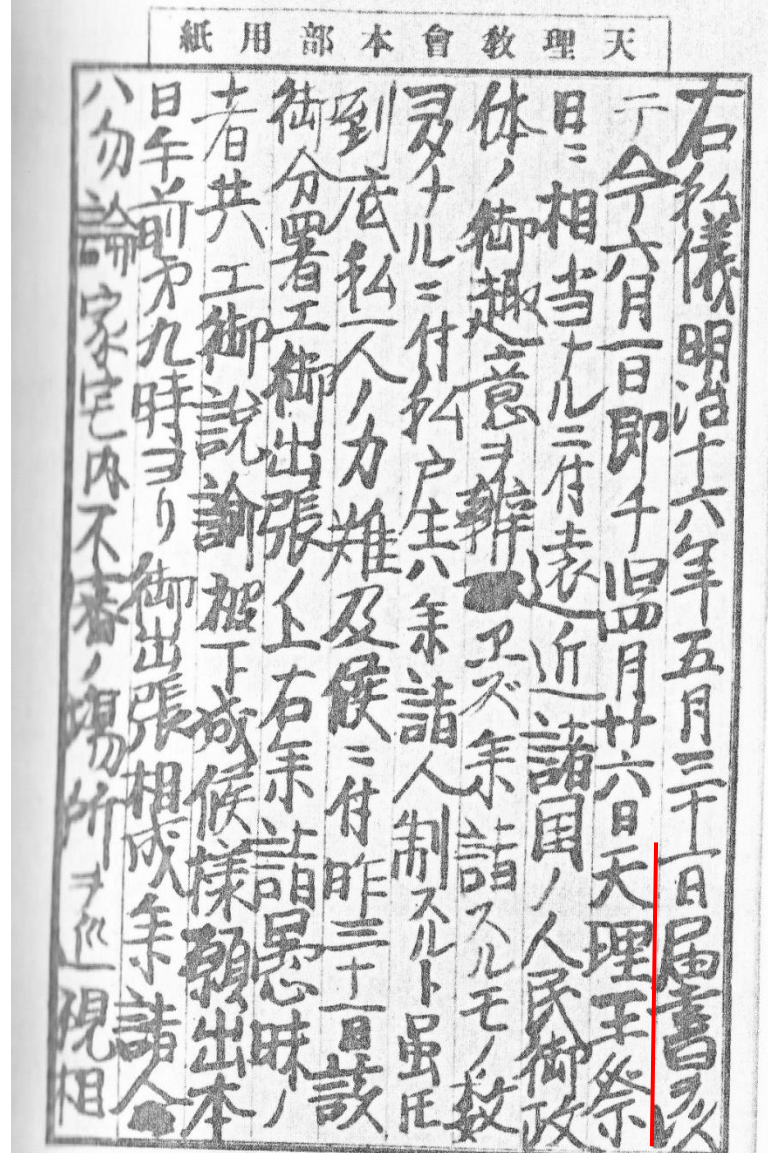 天理教會本部用紙
右私儀明治十六年五月三十一日届書ヲ以
テ今六月一日即チ旧四月廿六日天理王祭
日ニ相当ナルニ付遠近諸国ノ人民御政
体ノ御趣意ヲ辨ヱズ参詣スルモノ数
多ナルニ付私戸主ハ参詣人制スルト虽𪜈
到底私一人ノ力難及候ニ付昨三十一日該
御分署エ御出張ノ上右参詣愚昧ノ
者共エ御説諭被下成候様願出本
日午前㐧九時ヨリ御出張相成参詣人
ハ勿論家宅内不審ノ場所ヲ巡視相